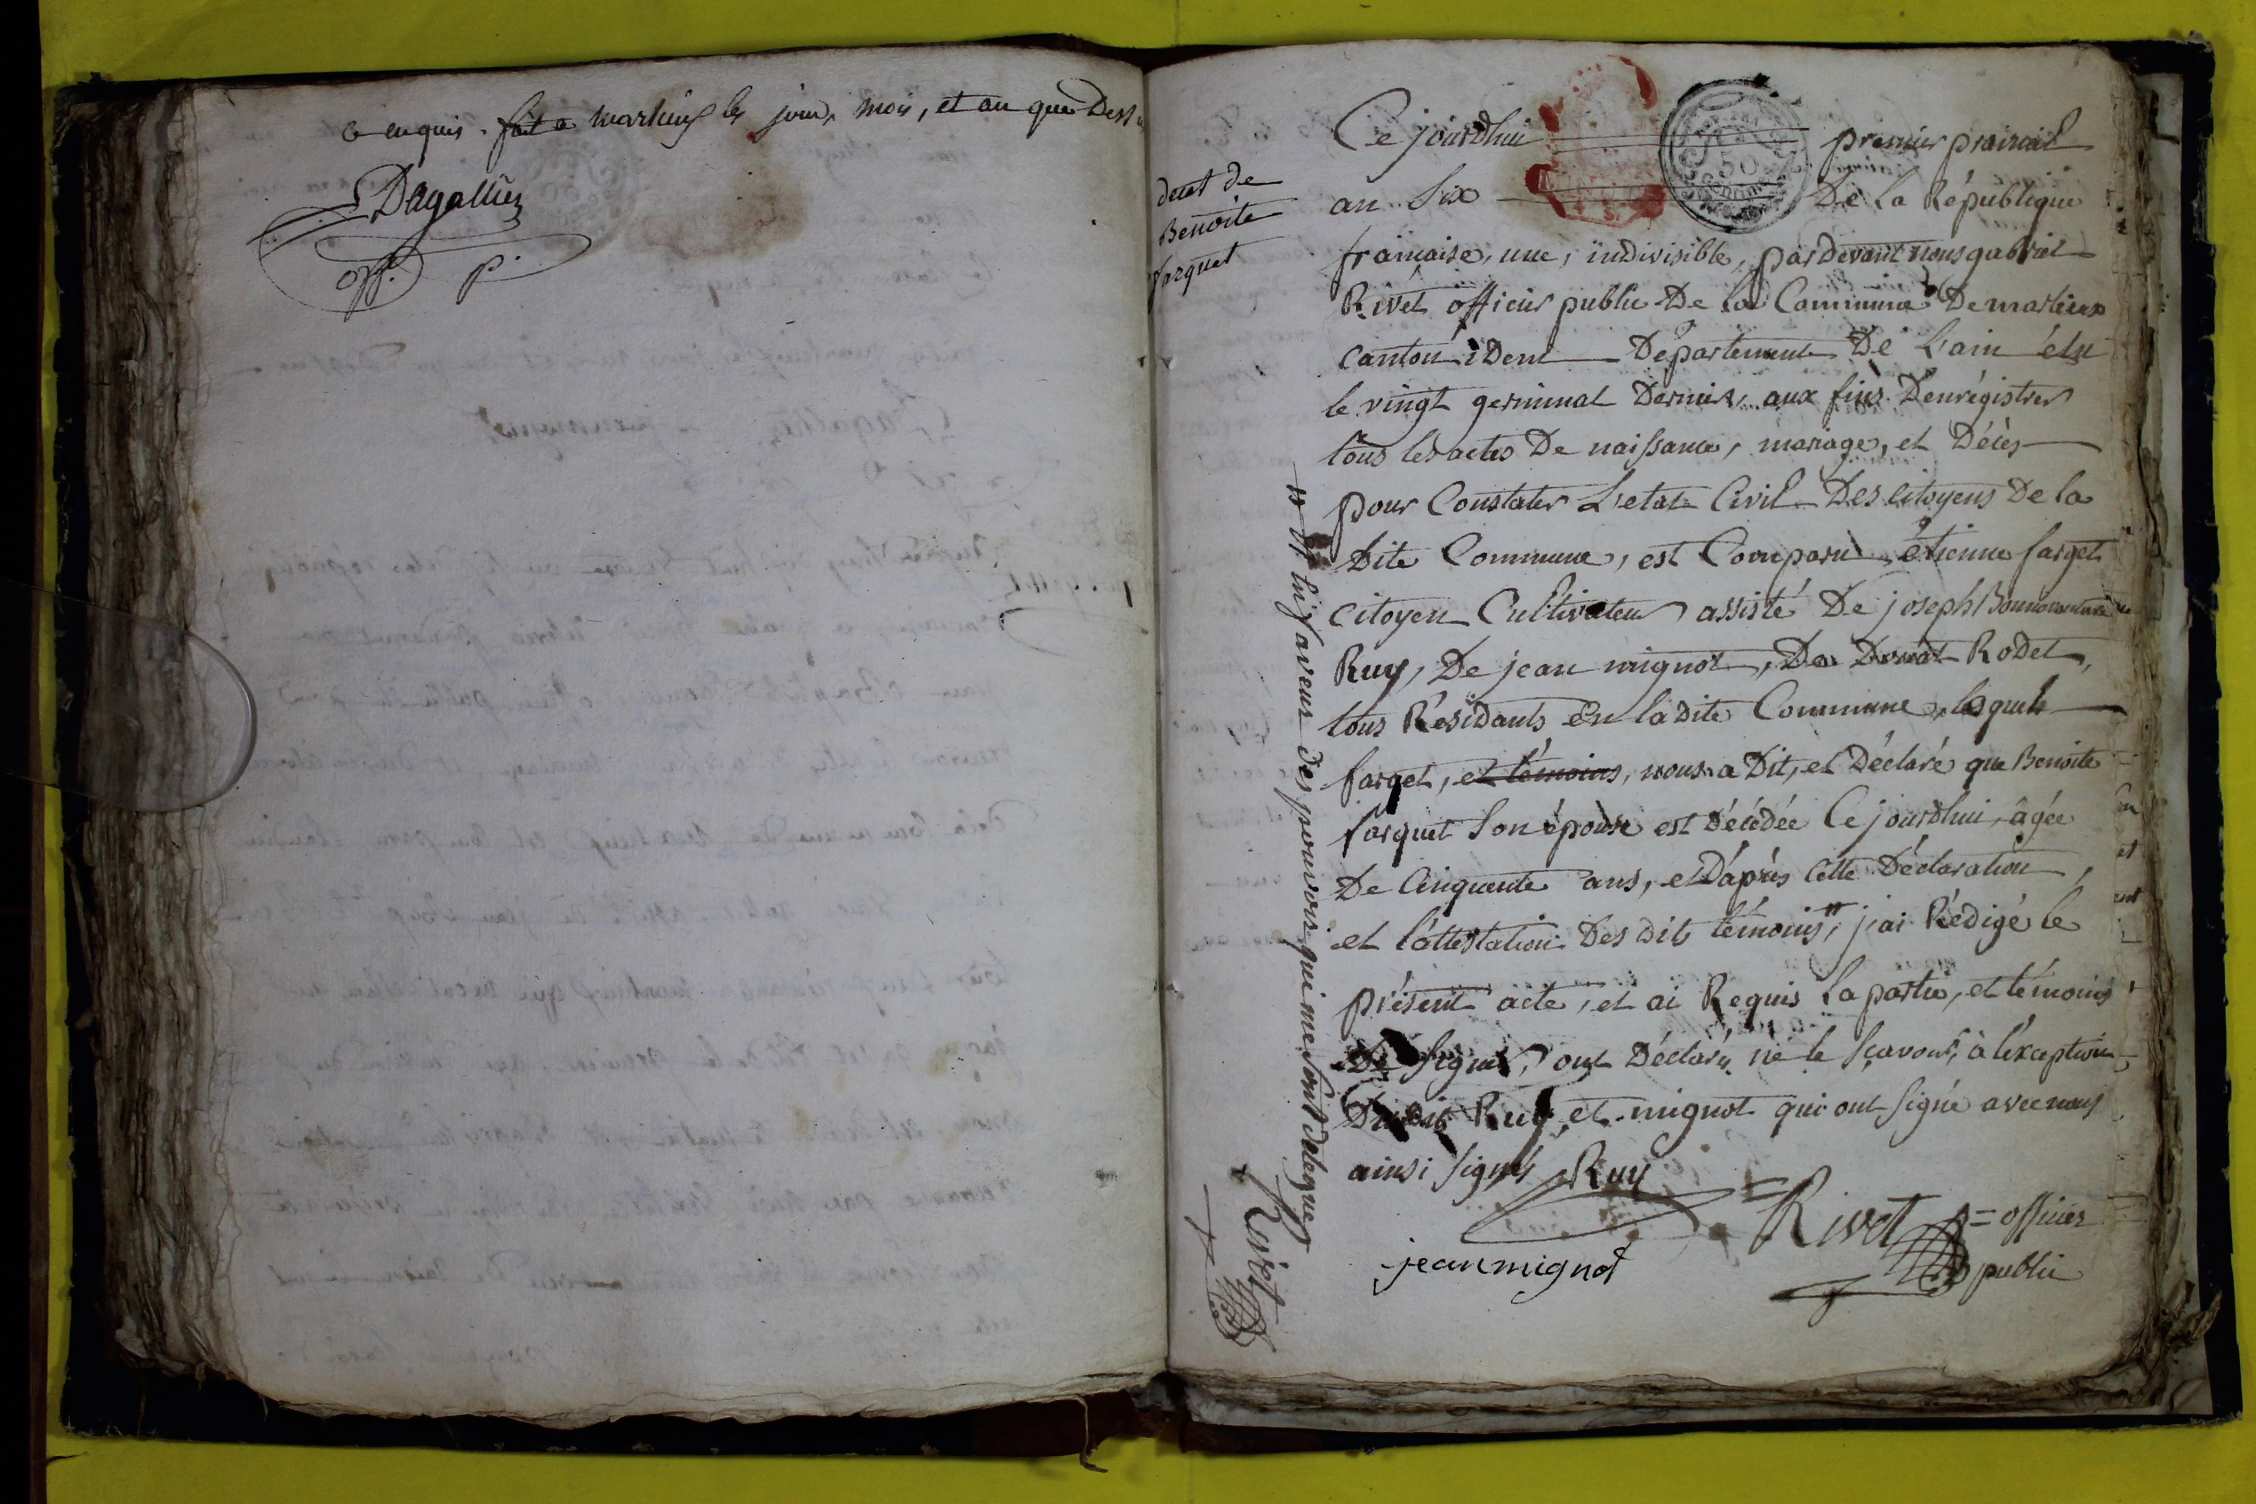 ce enquis. fait a marlieux les jour, mois, et an que Dessus
Dagallier
off. p.
decet de
Benoite
farguet
Ce jourdhui premier prairial
an Six De la République
française, une, indivisible, pardevant nous gabriel
Rivet officier public De la Commune De marlieux
canton idem Département De L'ain élu
le vingt germinal Dernier, aux fins D'enrégistrer
tous les actes De naissance, mariage, et Décès
pour Constater L'etat Civil Des citoyens De la
Dite Commune, est Comparu étienne farget
citoyen Cultivateur assisté De joseph Bonnaventure
Ruy, De jean mignot, De Rodet,
tous Résidants En ladite Commune, lesquels
farget, et témoins, nous a Dit, et Déclaré que Benoite
farguet Son épouse est Décédée Ce jourdhui, âgée
De Cinquente ans, et D'après cette Déclaration,
et l'attestation Des dits témoins, " j'ai Rédigé le
présent acte, et ai Requis la partie, et témoins
De signer, ont Déclaré ne le Sçavoir, à l'exception
Dudit Ruy, et mignot qui ont signé avec nous
ainsi signés Ruy
Rivet = officier
public
jean mignot
" et en faveur des pouvoirs qui me sont délégués
Rivet
50
centimes